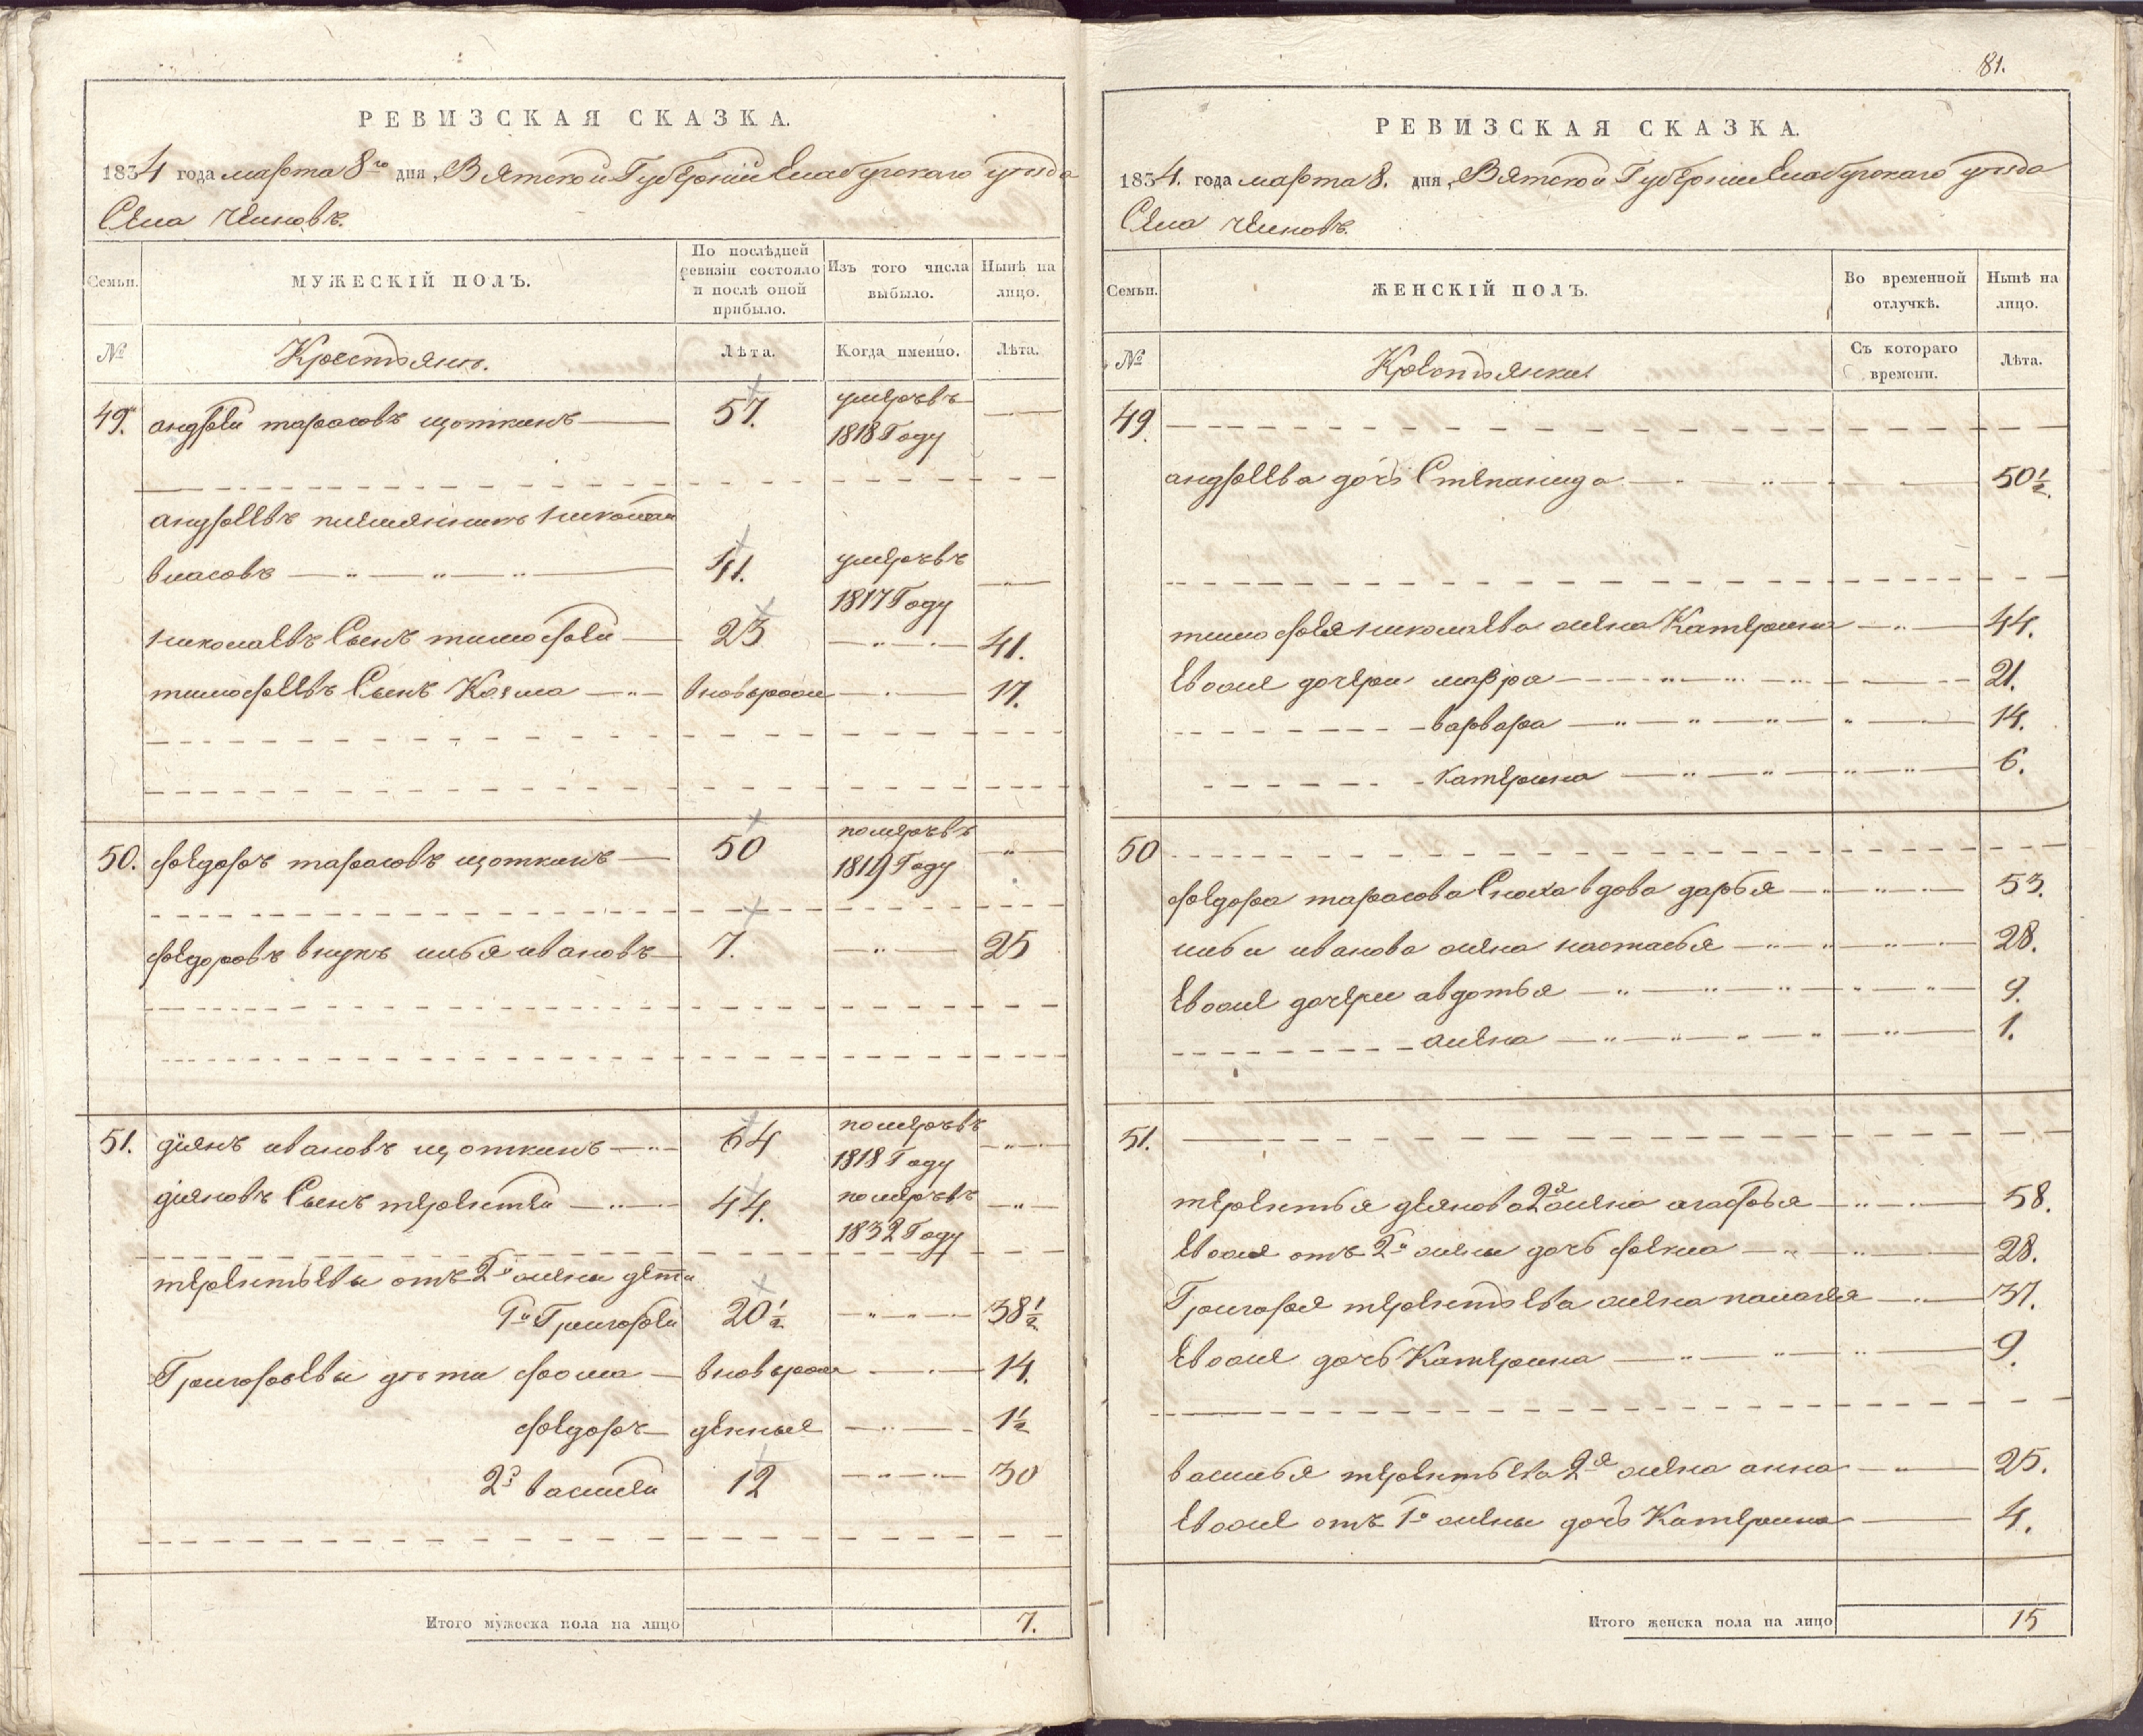 РЕВИЗСКАЯ СКАЗКА.
1834 года марта 8го дня, Вятской Губернии Елабужскаго уѣзда
Села
Семьи.
МУЖЕСКІЙ ПОЛЪ.
По послѣдней ревизіи состояло и послѣ оной прибыло.
Изъ того числа выбыло.
Нынѣ на лицо.
№
Крестьянъ.
Лѣта.
Когда именно.
Лѣта.
49. андрей тарасовъ щоткинъ 57. умеръ въ 1818 Году
андреевъ племянникъ николай
власовъ 41. умеръ въ 1817 Году
николаевъ Сынъ тимофей 23 41.
тимофеевъ Сынъ Козма вновьрож 17.
50. федоръ тарасовъ щоткинъ 50 померъ въ 1819 Году
федоровъ внукъ илья ивановъ 7. 25
51. діянъ ивановъ щоткинъ 64 померъ въ 1818 Году
діяновъ Сынъ терентей 44. померъ въ 1832 Году
терентьевы отъ 2й жены дети
1й Григорей 20½ 38½
Григорьевы дѣти фома вновьрож 14.
федоръ денные 1½
2й василей 12 30
Итого мужеска пола на лицо 7.
81.
РЕВИЗСКАЯ СКАЗКА.
1834. года марта 8. дня, Вятской Губернии Елабужскаго уѣзда
Села
Семьи.
ЖЕНСКІЙ ПОЛЪ.
Во временной отлучкѣ.
Нынѣ на лицо.
№
Крестьянки
Съ котораго времени.
Лѣта.
49.
андреева дочь Степанида 50½.
тимофея николаева жена Катерина 44.
Евоже дочери мавра 21.
варвара 14.
катерина 6.
50
федора тарасова Сноха вдова дарья 53.
ильи иванова жена настасья 28.
Евоже дочери авдотья 9.
алена 1.
51.
терентья деянова 2я жена агафья 58.
Евоже отъ 2й жены дочь фекла 28.
Григорья терентьева жена палагея 37.
Евоже дочь Катерина 9.
василья терентьева 2я жена анна 25.
Евоже отъ 1й жены дочь Катерина 4.
Итого женска пола на лицо 15